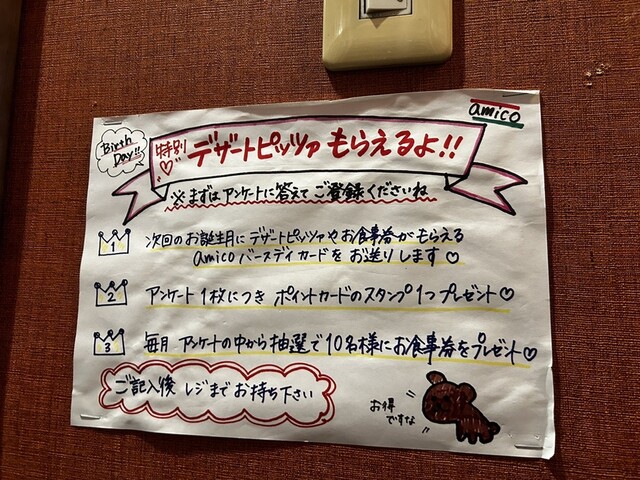 amico
Birth
Day!!
特別♡ デザートピッツァ もらえるよ!!
※まずは アンケートに答えて ご登録くださいね
1 次回のお誕生月に デザートピッツァや お食事券が もらえる
amico バースデイ カードを お送りします♡
2 アンケート 1枚につき ポイントカードのスタンプ 1つ プレゼント♡
3 毎月 アンケートの中から 抽選で 10名様に お食事券を プレゼント♡
ご記入後 レジまで お持ち下さい
お得
ですな